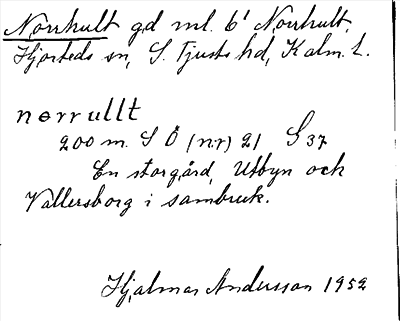 Norrhult gd ml. 6¹ Norrhult,
Hjorteds sn, S. Tjusts hd, Kalm. l.
norrullt
200 m. S Ö (nr) 21 S 37
En storgård, Utbyn och
Vallersborg i sambruk.
Hjalmar Andersson 1952